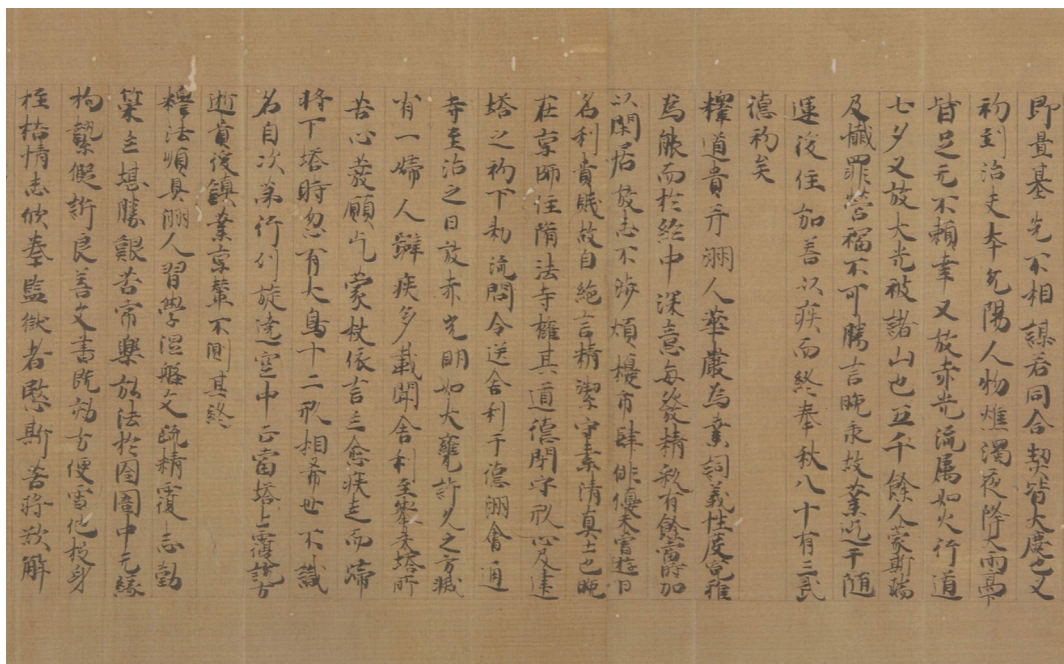 即量基先不相謀若同合契皆大慶也又
初到治夫本亢陽人物燋渴夜降大雨高下
皆足无不賴幸又放赤光流属如火行道
七夕又放大光被諸山也五千餘人蒙斯瑞
及懴罪營福不可勝言晚承故業迄于随
運後住加善以疾而終春秋八十有三武
德初矣
釋道貴并州人華嚴為業詞義性度寛雅
為能而於經中深意每發精彩有餘當時加
以閑居放志不涉煩擾市肆俳優未曾遊目
名利貴賤故自絕言精潔守素清真士也晚
在京師住隋法寺擁其道德閉守形心及建
塔之初下勑流問令送舍利于德州會通
寺至治之日放赤光明如大甕許久之方滅
有一婦人躃疾多載聞舍利至轝來塔所
苦心發願乞蒙杖依言立愈疾走而歸
将下塔時忽有大鳥十二形相希世不識
名自次第行列旋遶空中正當塔上覆訖方
逝貴後鎮業京輦不測其終
釋法順具州人習學湼槃文疏精覆志勤
策立堪勝艱苦常樂弘法於囹圄中无緣
拘縶假訢良善文書既効方便雪他投身
桎梏情志欣奉監獄者愍斯苦将欲解